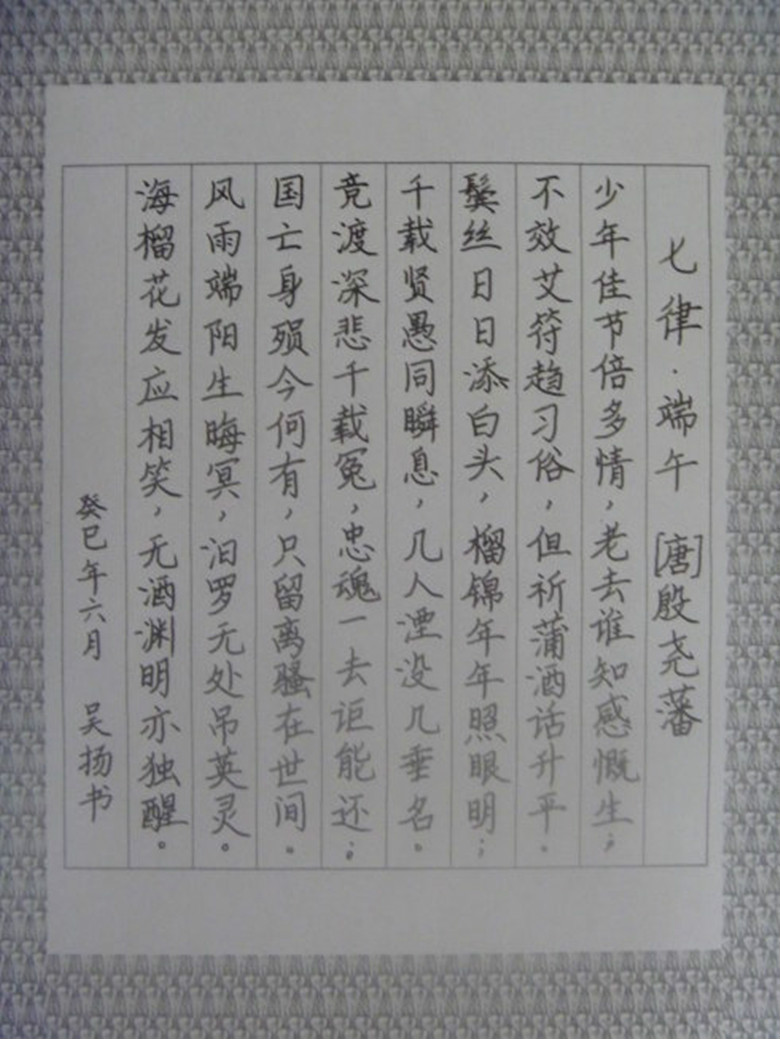 七律·端午 [唐]殷尧藩
少年佳节倍多情，老去谁知感慨生；
不效艾符趋习俗，但祈蒲酒话升平。
鬓丝日日添白头，榴锦年年照眼明；
千载贤愚同瞬息，几人湮没几垂名。
竞渡深悲千载冤，忠魂一去讵能还；
国亡身殒今何有，只留离骚在世间。
风雨端阳生晦冥，汨罗无处吊英灵。
海榴花发应相笑，无酒渊明亦独醒。
癸巳年六月 吴扬书